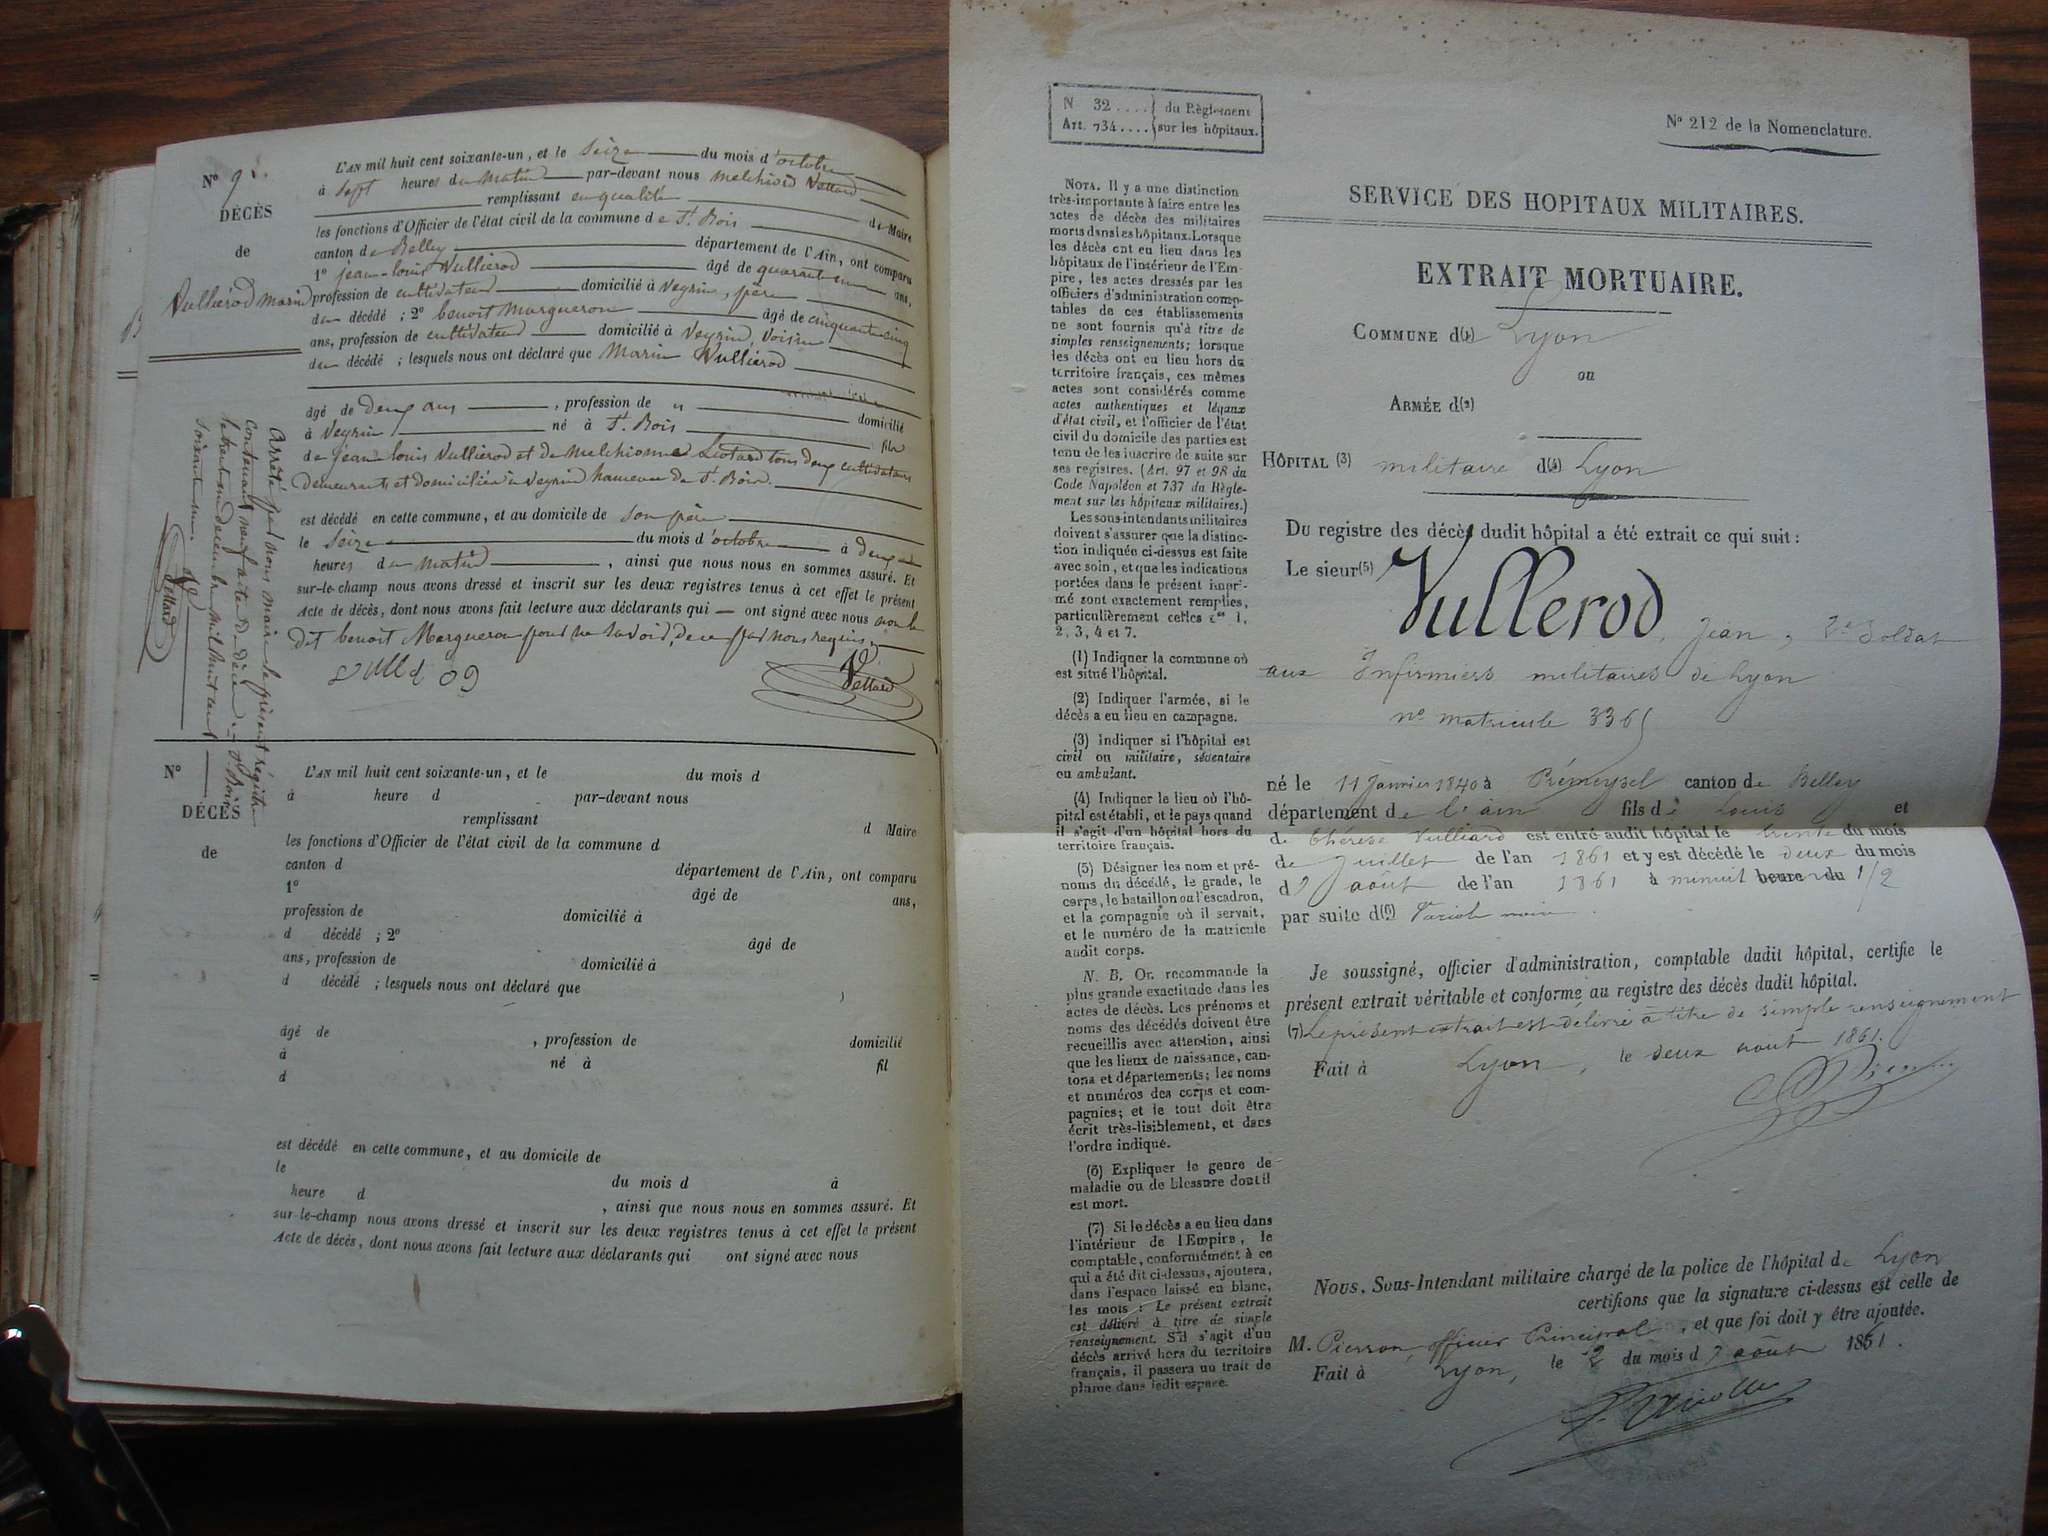 Nº 9.
DÉCÈS
de
Vulliérod Marin
L'AN mil huit cent soixante-un, et le Seize du mois d'octobre
à Sept heures du Matin par-devant nous Melchior Vettard
remplissant en qualité de Maire
les fonctions d'Officier de l'état civil de la commune de St Bois
canton de Belley département de l'Ain, ont comparu
1º jean-louis Vulliérod âgé de quarante un ans,
profession de cultivateur domicilié à Veyrin, père
du décédé ; 2º benoit Margueron âgé de cinquante cinq
ans, profession de cultivateur domicilié à Veyrin, Voisin
du décédé ; lesquels nous ont déclaré que Marin Vulliérod
âgé de deux ans , profession de " domicilié
à Veyrin né à St Bois fils
de jean louis Vulliérod et de Melchionne Liotard tous deux cultivateurs
demeurants et domiciliés à Veyrin hameau de St Bois.
est décédé en cette commune, et au domicile de son père
le Seize du mois d'octobre à deux
heures du Matin , ainsi que nous nous en sommes assuré. Et
sur-le-champ nous avons dressé et inscrit sur les deux registres tenus à cet effet le présent
Acte de décès, dont nous avons fait lecture aux déclarants qui ont signé avec nous non le
dit benoit Margueron pour ne savoir, de ce par nous requis.
Vettard
Arrêté par nous maire le présent régistre
contenant neuf actes de décès. St Bois
le trente un décembre mil huit cent
soixante un
Vettard
Nº
DÉCÈS
de
L'AN mil huit cent soixante-un, et le du mois d
à heure d par-devant nous
remplissant
d Maire
les fonctions d'Officier de l'état civil de la commune d
canton d département de l'Ain, ont comparu
1º âgé de ans,
profession de domicilié à
d décédé ; 2º âgé de
ans, profession de domicilié à
d décédé ; lesquels nous ont déclaré que
âgé de , profession de domicilié
à né à fil
d
est décédé en cette commune, et au domicile de
le du mois d à
heure d , ainsi que nous nous en sommes assuré. Et
sur-le-champ nous avons dressé et inscrit sur les deux registres tenus à cet effet le présent
Acte de décès, dont nous avons fait lecture aux déclarants qui ont signé avec nous
N 32 .... du Règlement
Art. 734 .... sur les hôpitaux.
Nº 212 de la Nomenclature.
NOTA. Il y a une distinction
très-importante à faire entre les
actes de décès des militaires
morts dans les hôpitaux. Lorsque
les décès ont eu lieu dans les
hôpitaux de l'intérieur de l'Em-
pire, les actes dressés par les
officiers d'administration comp-
tables de ces établissements
ne sont fournis qu'à titre de
simples renseignements; lorsque
les décès ont eu lieu hors du
territoire français, ces mêmes
actes sont considérés comme
actes authentiques et légaux
d'état civil, et l'officier de l'état
civil du domicile des parties est
tenu de les inscrire de suite sur
ses registres. (Art. 97 et 98 du
Code Napoléon et 737 du Règle-
ment sur les hôpitaux militaires.)
Les sous-intendants militaires
doivent s'assurer que la distinc-
tion indiquée ci-dessus est faite
avec soin, et que les indications
portées dans le présent impri-
mé sont exactement remplies,
particulièrement celles nos 1,
2, 3, 4 et 7.
(1) Indiquer la commune où
est situé l'hôpital.
(2) Indiquer l'armée, si le
décès a eu lieu en campagne.
(3) Indiquer si l'hôpital est
civil ou militaire, sédentaire
ou ambulant.
(4) Indiquer le lieu où l'hô-
pital est établi, et le pays quand
il s'agit d'un hôpital hors du
territoire français.
(5) Désigner les nom et pré-
noms du décédé, le grade, le
corps, le bataillon ou l'escadron,
et la compagnie où il servait,
et le numéro de la matricule
audit corps.
N. B. On recommande la
plus grande exactitude dans les
actes de décès. Les prénoms et
noms des décédés doivent être
recueillis avec attention, ainsi
que les lieux de naissance, can-
tons et départements; les noms
et numéros des corps et com-
pagnies; et le tout doit être
écrit très-lisiblement, et dans
l'ordre indiqué.
(6) Expliquer le genre de
maladie ou de blessure dont il
est mort.
(7) Si le décès a eu lieu dans
l'intérieur de l'Empire, le
comptable, conformément à ce
qui a été dit ci-dessus, ajoutera,
dans l'espace laissé en blanc,
les mots : Le présent extrait
est délivré à titre de simple
renseignement. S'il s'agit d'un
décès arrivé hors du territoire
français, il passera un trait de
plume dans ledit espace.
SERVICE DES HOPITAUX MILITAIRES.
EXTRAIT MORTUAIRE.
COMMUNE d(1) Lyon
ou
ARMÉE d(2)
HÔPITAL (3) militaire d(4) Lyon
Du registre des décès dudit hôpital a été extrait ce qui suit :
Le sieur (5) Vullerod, Jean, 2e Soldat
aux Infirmiers militaires de Lyon
nº matricule 3365
né le 11 Janvier 1840 à Prémeyzel canton de Belley
département de l'ain fils de Louis et
de thérèse Vulliard est entré audit hôpital le trente du mois
de Juillet de l'an 1861 et y est décédé le deux du mois
d'août de l'an 1861 à minuit heure du 1/2
par suite d(6) Variole noire.
Je soussigné, officier d'administration, comptable dudit hôpital, certifie le
présent extrait véritable et conforme au registre des décès dudit hôpital.
(7) Le présent extrait est délivré à titre de simple renseignement
Fait à Lyon, le deux aout 1861.
NOUS, Sous-Intendant militaire chargé de la police de l'hôpital de Lyon
certifions que la signature ci-dessus est celle de
M. Pierron, officier Principal, et que foi doit y être ajoutée.
Fait à Lyon, le 2 du mois d'août 1861.